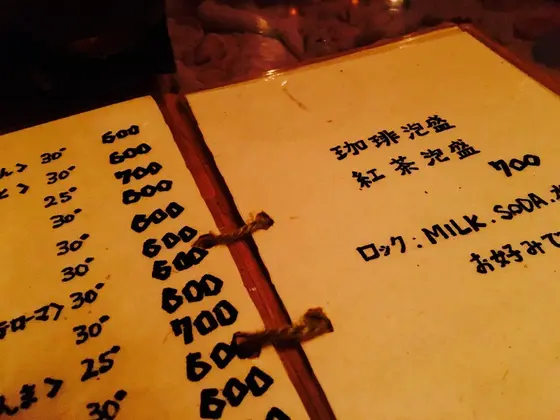 ん> 30° 600
> 30° 600
25° 700
30° 600
30° 600
30° 600
テローマ> 30° 600
30° 600
んま> 25° 700
30° 600
600
珈琲泡盛
紅茶泡盛
700
ロック:MILK.SODA.
お好みで